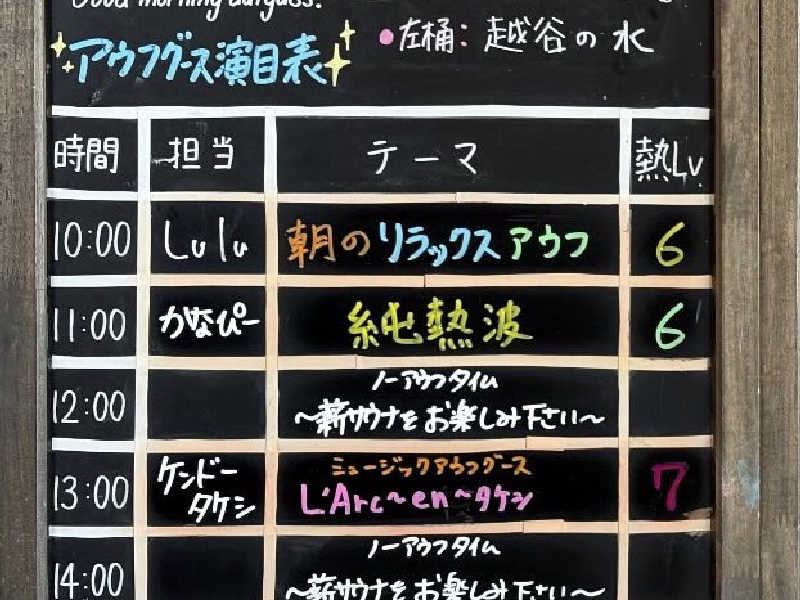 Good morning aufguss!
アウフグース演目表
●左桶：越谷の水
時間 担当 テーマ 熱Lv
10:00 Lulu 朝のリラックスアウフ 6
11:00 かなぴー 純熱波 6
ノーアウフタイム
12:00 〜薪サウナをお楽しみ下さい〜
ケンドー ミュージックアウフグース
13:00 タケシ L'Arc〜en〜タケシ 7
ノーアウフタイム
14:00 〜薪サウナをお楽しみ下さい〜